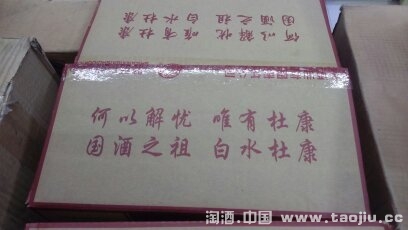 国酒之祖 白水杜康
何以解忧 唯有杜康
何以解忧 唯有杜康
国酒之祖 白水杜康
淘酒.中国 www.taojiu.cc